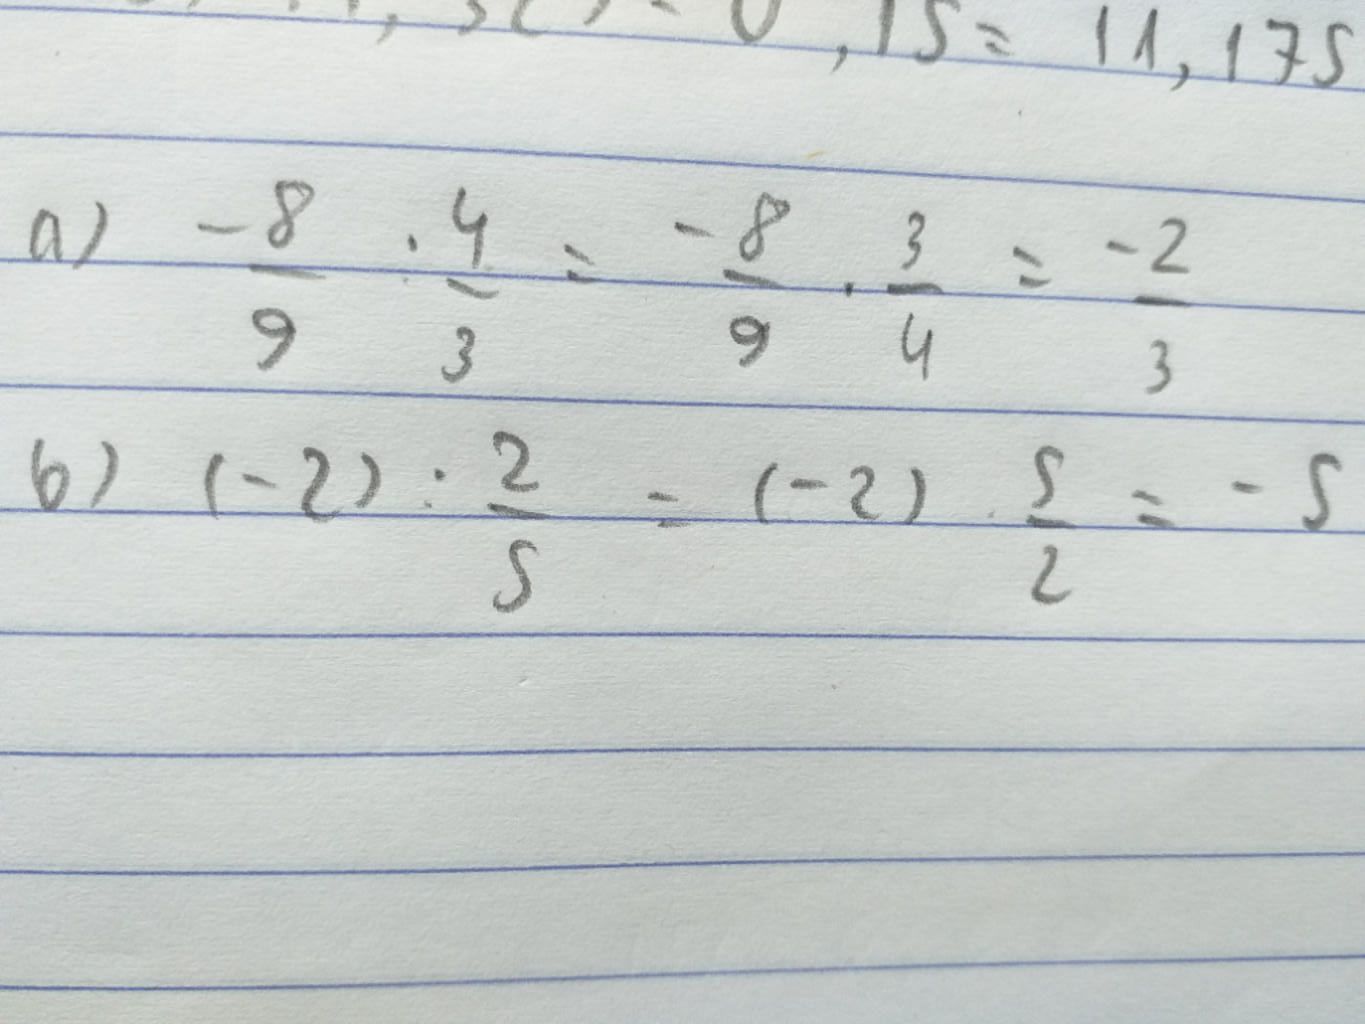 ,15 = 11,175
a) -8/9 : 4/3 = -8/9 . 3/4 = -2/3
b) (-2) : 2/5 = (-2) . 5/2 = -5